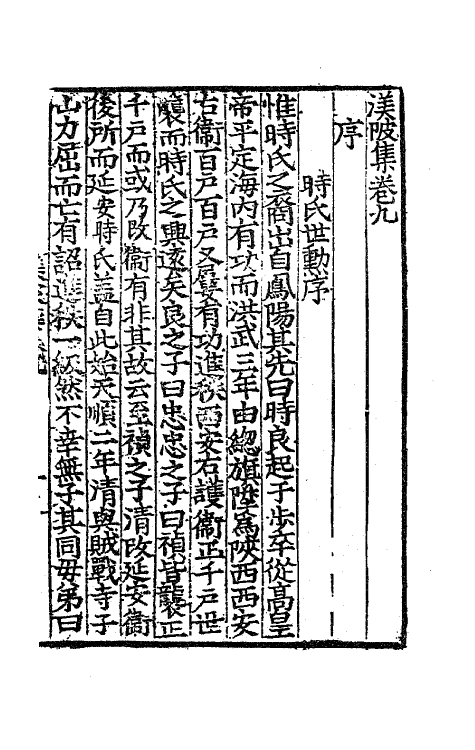 渼陂集卷九
序
時氏世勳序
惟時氏之裔出自鳳陽其先曰時良起于步卒從高皇
帝平定海内有功而洪武三年由總旗陞爲陜西西安
右衛百戸百戸又屢有功進秩西安右護衛正千戸世
襲而時氏之興遠矣良之子曰忠忠之子曰禎皆襲正
千戸而或乃改衛有非其故云至禎之子清改延安衛
後所而延安時氏蓋自此始天順二年清與賊戰寺子
山力屈而亡有詔進秩一級然不幸無子其同母弟曰